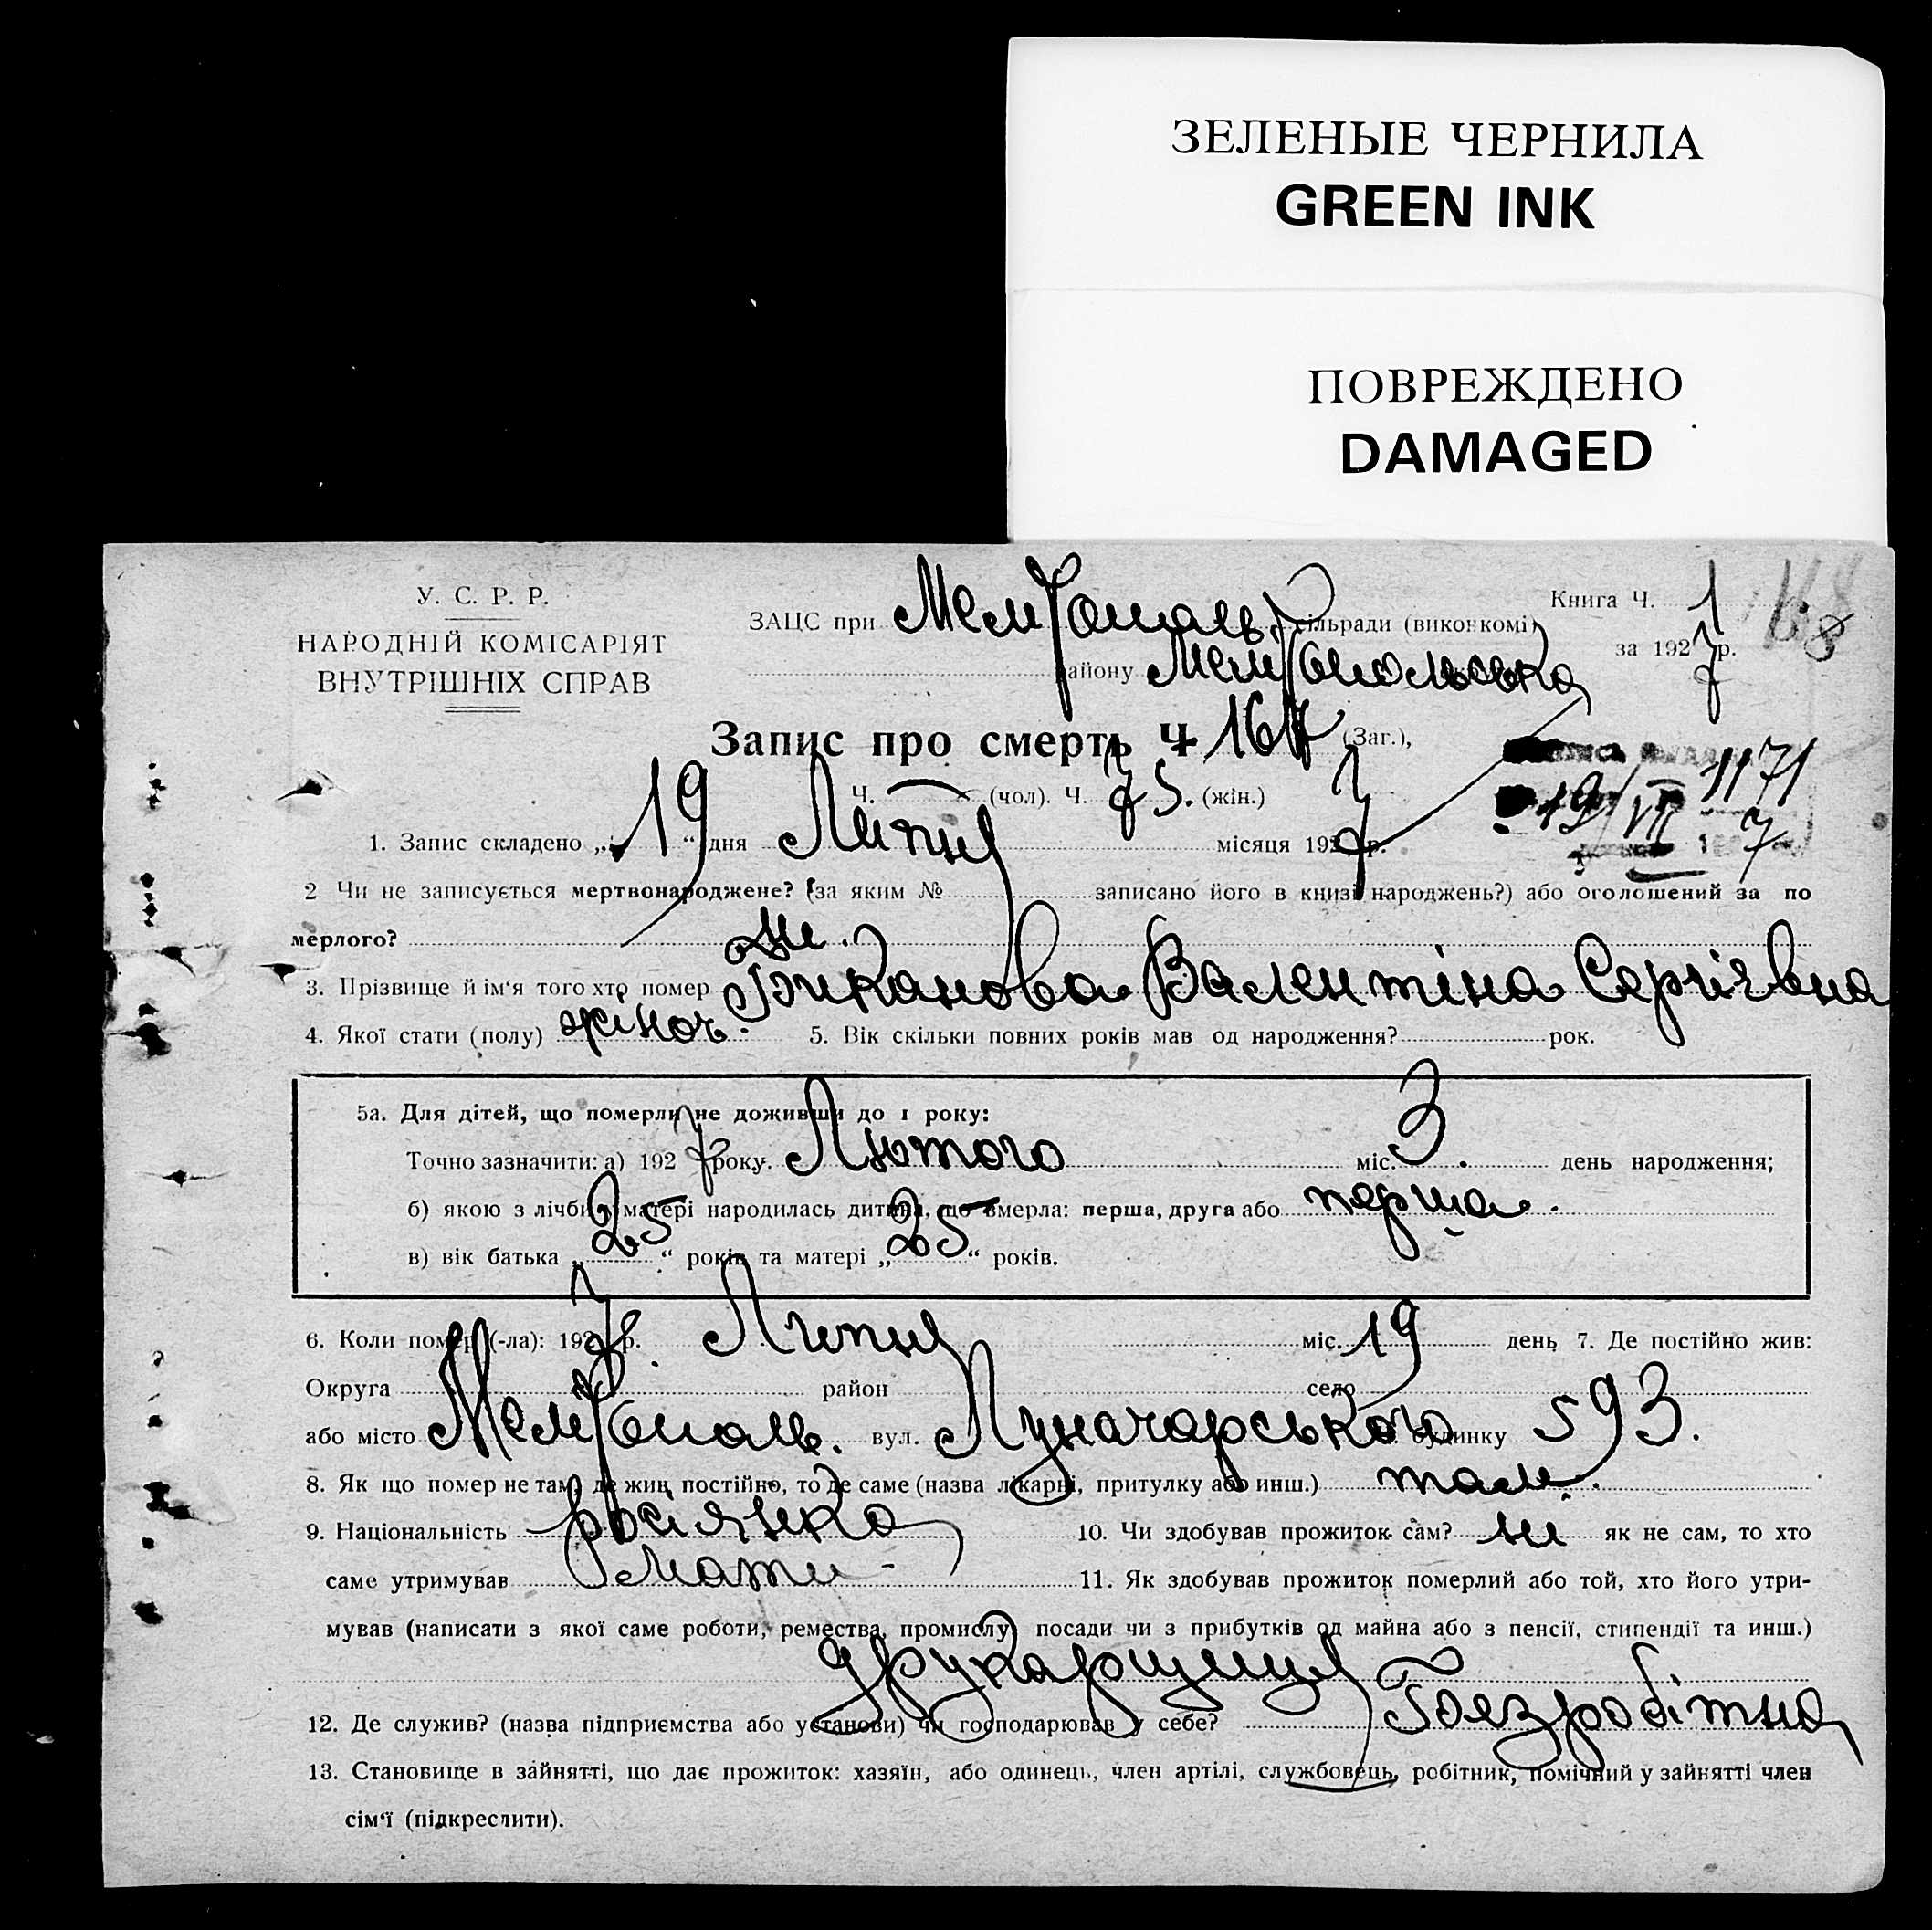 ЗЕЛЕНЫЕ ЧЕРНИЛА
GREEN INK
ПОВРЕЖДЕНО
DAMAGED
У. С. Р. Р.
НАРОДНІЙ КОМІСАРІЯТ
ВНУТРІШНІХ СПРАВ
ЗАЦС при Мелітополь сільради (виконкомі)
району Мелітопольська
Книга Ч. 1
за 1927 р.
168
Запис про смерть Ч 167 (Заг.),
Ч. — (чол). Ч. 75. (жін.)
1171
19/VII 7
1. Запис складено „19“ дня Липня місяця 1927 р.
2 Чи не записується мертвонароджене? (за яким № записано його в книзі народжень?) або оголошений за по
мерлого? ні.
3. Прізвище й ім‘я того хто помер Биканова Валентіна Сергіївна
4. Якої стати (полу) жіноч. 5. Вік скільки повних років мав од народження? рок.
5а. Для дітей, що померли не доживши до 1 року:
Точно зазначити: а) 1927 року. Лютого міс. 3. день народження;
б) якою з лічби у матері народилась дитина, що вмерла: перша, друга або перша.
в) вік батька „25“ років та матері „25“ років.
6. Коли помер (-ла): 1927 р. Липня міс. 19 день 7. Де постійно жив:
Округа район село
або місто Мелітополь. вул. Луначарського будинку 593.
8. Як що помер не там, де жив постійно, то де саме (назва лікарні, притулку або инш.) там.
9. Національність росіянка 10. Чи здобував прожиток сам? ні як не сам, то хто
саме утримував мати - 11. Як здобував прожиток померлий або той, хто його утри-
мував (написати з якої саме роботи, ремества, промислу, посади чи з прибутків од майна або з пенсії, стипендії та инш.)
друкарщиця
12. Де служив? (назва підприємства або установи) чи господарював у себе? Безробітна
13. Становище в зайнятті, що дає прожиток: хазяїн, або одинець, член артілі, службовець, робітник, помічний у зайнятті член
сім‘ї (підкреслити).